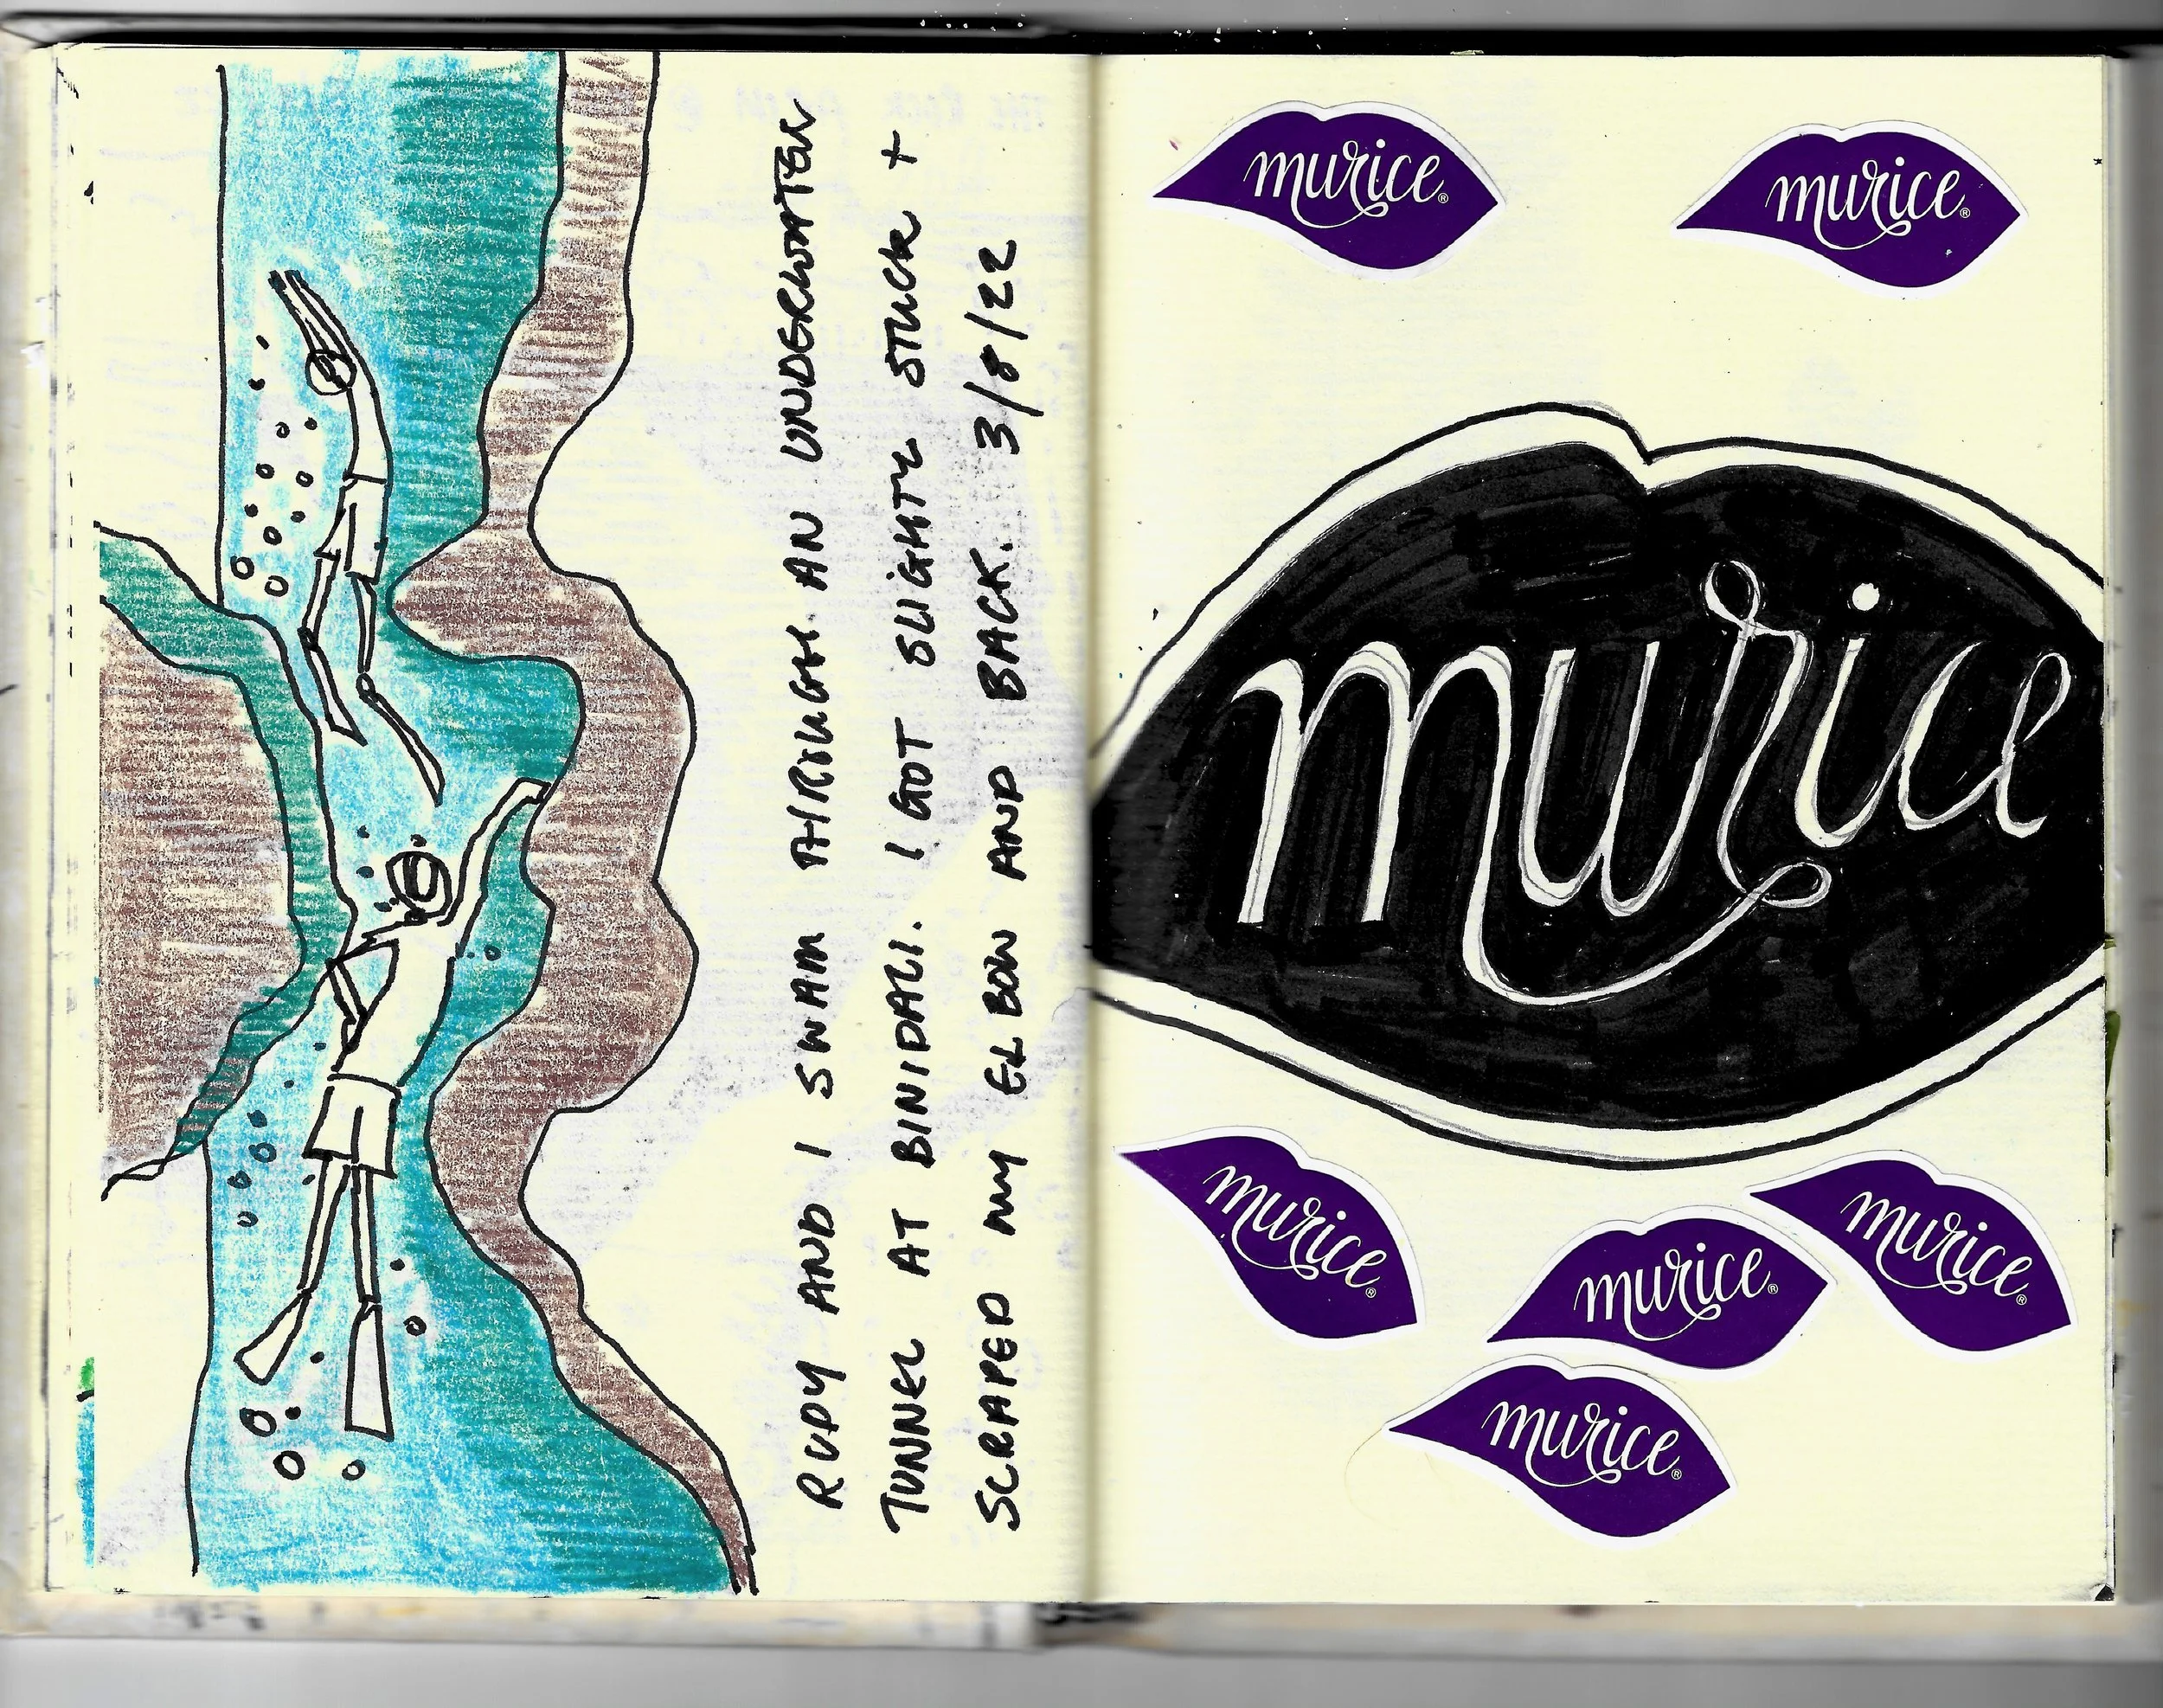 RUDY AND I SWAM THROUGH AN UNDERWATER
TUNNEL AT BINIDALI. I GOT SLIGHTY STUCK +
SCRAPED MY ELBOW AND BACK. 3/8/22
murice®
murice®
murice
murice®
murice®
murice®
murice®